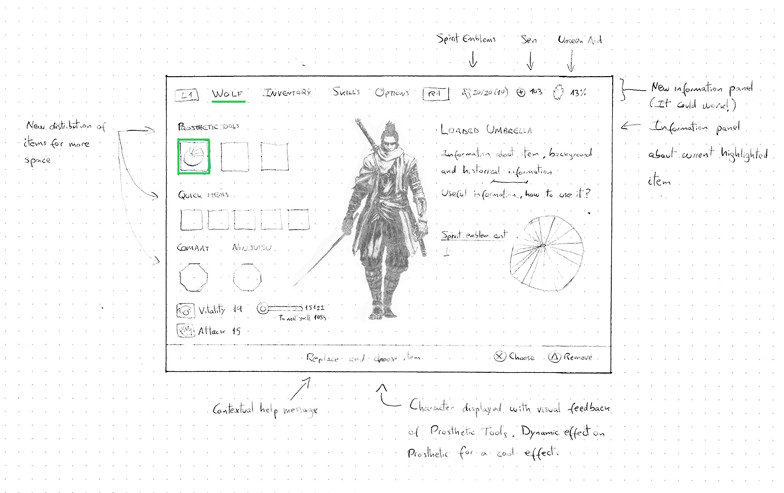 Spirit Emblems Sen Unseen Aid
L1 WOLF INVENTORY SKILLS OPTIONS R1 20/20 (10) 103 13%
New information panel
(It could work!)
New distribution of
items for more
space
PROSTHETIC TOOLS
LOADED UMBRELLA
Information panel
about current highlighted
item
Information about item, background
and historical information
Useful information, how to use it?
QUICK ITEMS
Spirit emblem cost
1
COMBAT NINJUTSU
Vitality 19
To next skill
Attack 15
Replace and choose item
X Choose Δ Remove
Contextual help message
Character displayed with visual feedback
of Prosthetic Tools. Dynamic effect on
Prosthetic for a cool effect.